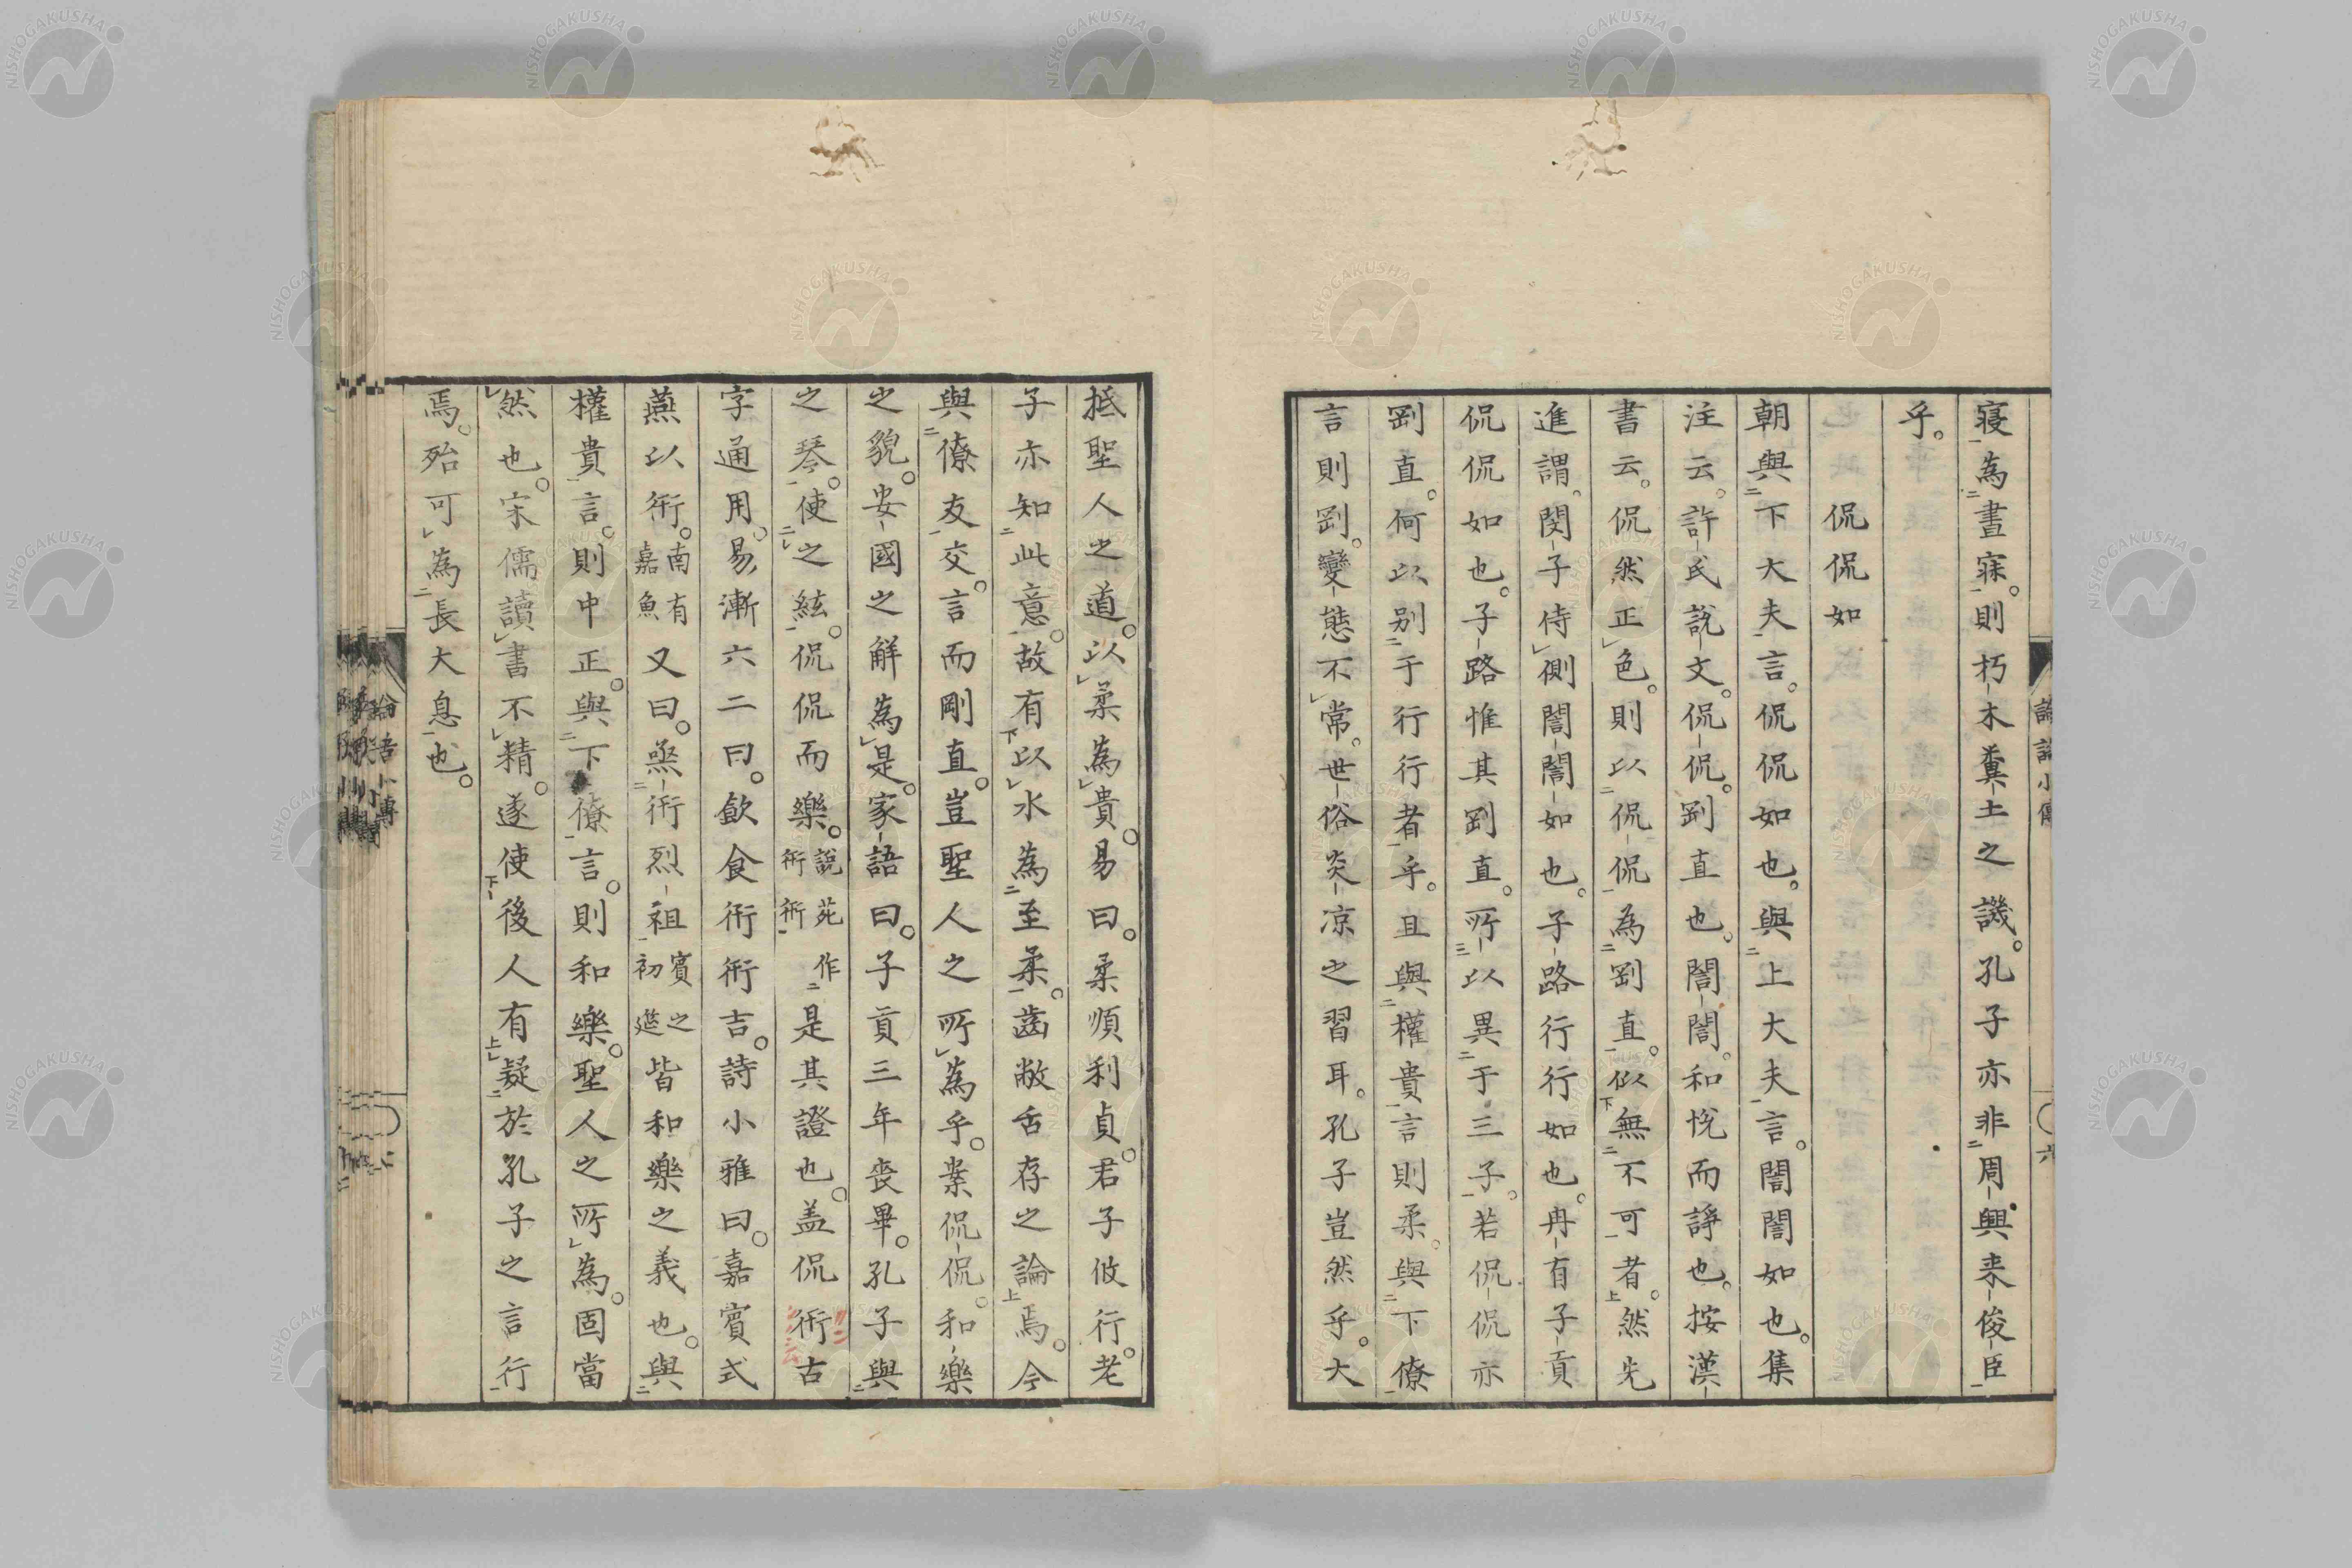 寢為晝寐。則朽木糞土之譏。孔子亦非周興来俊臣
乎。
侃侃如
朝與下大夫言。侃侃如也。與上大夫言。誾誾如也。集
注云。許氏說文。侃侃。剛直也。誾誾。和悅而諍也。按漢
書云。侃然正色。則以侃侃為剛直。似無不可者。然先
進謂。閔子侍側誾誾如也。子路行行如也。冉有子貢
侃侃如也。子路惟其剛直。所以異于三子。若侃侃亦
剛直。何以别于行行者乎。且與權貴言則柔。與下僚
言則剛。變態不常。世俗炎凉之習耳。孔子豈然乎。大
抵聖人之道。以柔為貴。易曰。柔順利貞。君子攸行。老
子亦知此意。故有以水為至柔。齒敝舌存之論焉。今
與僚友交。言而剛直。豈聖人之所為乎。案侃侃。和樂
之貌。安國之解為是。家語曰。子貢三年喪畢。孔子與
之琴。使之絃。侃侃而樂。說苑作衎衎是其證也。盖侃衎古
字通用。易漸六二曰。飲食衎衎吉。詩小雅曰。嘉賓式
燕以衎。南有嘉魚又曰。烝衎烈祖賓之初筵皆和樂之義也。與
權貴言。則中正。與下僚言。則和樂。聖人之所為。固當
然也。宋儒讀書不精。遂使後人有疑於孔子之言行
焉。殆可為長大息也。
論語小傳
六
論語小傳